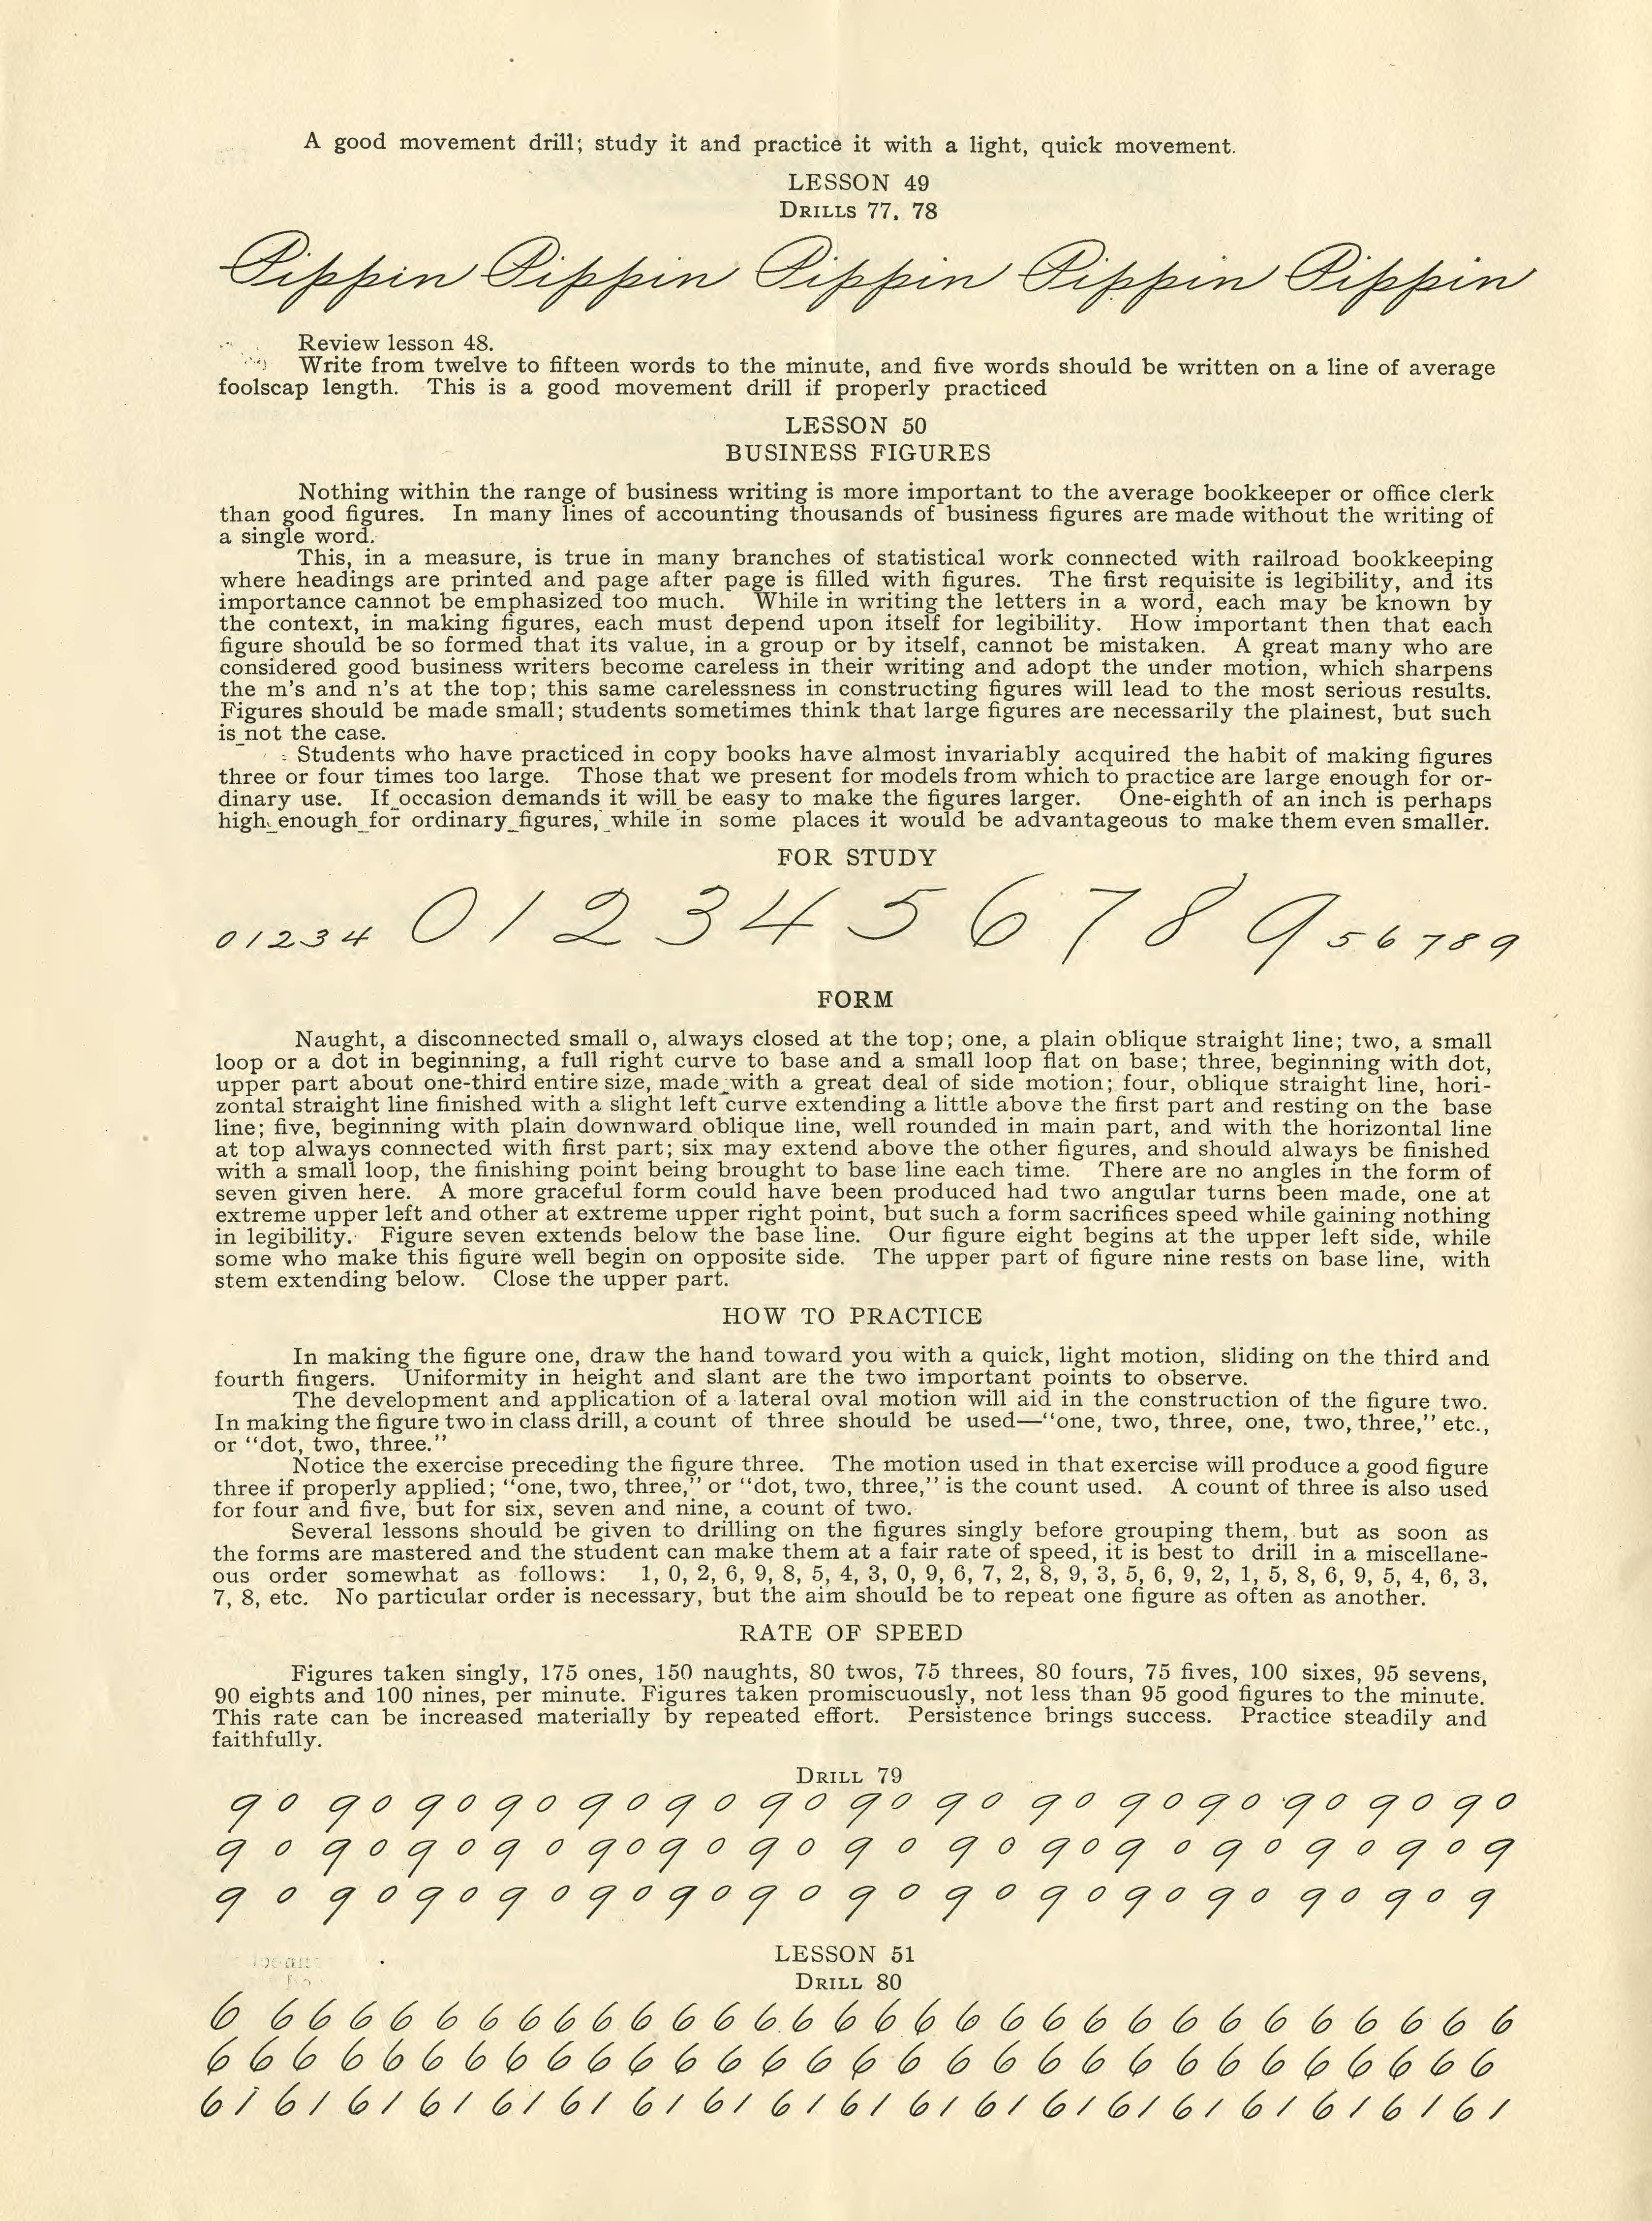 A good movement drill; study it and practice it with a light, quick movement.
LESSON 49
DRILLS 77, 78
Pippin Pippin Pippin Pippin Pippin
Review lesson 48.
Write from twelve to fifteen words to the minute, and five words should be written on a line of average
foolscap length. This is a good movement drill if properly practiced
LESSON 50
BUSINESS FIGURES
Nothing within the range of business writing is more important to the average bookkeeper or office clerk
than good figures. In many lines of accounting thousands of business figures are made without the writing of
a single word.
This, in a measure, is true in many branches of statistical work connected with railroad bookkeeping
where headings are printed and page after page is filled with figures. The first requisite is legibility, and its
importance cannot be emphasized too much. While in writing the letters in a word, each may be known by
the context, in making figures, each must depend upon itself for legibility. How important then that each
figure should be so formed that its value, in a group or by itself, cannot be mistaken. A great many who are
considered good business writers become careless in their writing and adopt the under motion, which sharpens
the m's and n's at the top; this same carelessness in constructing figures will lead to the most serious results.
Figures should be made small; students sometimes think that large figures are necessarily the plainest, but such
is not the case.
Students who have practiced in copy books have almost invariably acquired the habit of making figures
three or four times too large. Those that we present for models from which to practice are large enough for or-
dinary use. If occasion demands it will be easy to make the figures larger. One-eighth of an inch is perhaps
high enough for ordinary figures, while in some places it would be advantageous to make them even smaller.
FOR STUDY
0 1 2 3 4 0 1 2 3 4 5 6 7 8 9 5 6 7 8 9
FORM
Naught, a disconnected small o, always closed at the top; one, a plain oblique straight line; two, a small
loop or a dot in beginning, a full right curve to base and a small loop flat on base; three, beginning with dot,
upper part about one-third entire size, made with a great deal of side motion; four, oblique straight line, hori-
zontal straight line finished with a slight left curve extending a little above the first part and resting on the base
line; five, beginning with plain downward oblique line, well rounded in main part, and with the horizontal line
at top always connected with first part; six may extend above the other figures, and should always be finished
with a small loop, the finishing point being brought to base line each time. There are no angles in the form of
seven given here. A more graceful form could have been produced had two angular turns been made, one at
extreme upper left and other at extreme upper right point, but such a form sacrifices speed while gaining nothing
in legibility. Figure seven extends below the base line. Our figure eight begins at the upper left side, while
some who make this figure well begin on opposite side. The upper part of figure nine rests on base line, with
stem extending below. Close the upper part.
HOW TO PRACTICE
In making the figure one, draw the hand toward you with a quick, light motion, sliding on the third and
fourth fingers. Uniformity in height and slant are the two important points to observe.
The development and application of a lateral oval motion will aid in the construction of the figure two.
In making the figure two in class drill, a count of three should be used—"one, two, three, one, two, three," etc.,
or "dot, two, three."
Notice the exercise preceding the figure three. The motion used in that exercise will produce a good figure
three if properly applied; "one, two, three," or "dot, two, three," is the count used. A count of three is also used
for four and five, but for six, seven and nine, a count of two.
Several lessons should be given to drilling on the figures singly before grouping them, but as soon as
the forms are mastered and the student can make them at a fair rate of speed, it is best to drill in a miscellane-
ous order somewhat as follows: 1, 0, 2, 6, 9, 8, 5, 4, 3, 0, 9, 6, 7, 2, 8, 9, 3, 5, 6, 9, 2, 1, 5, 8, 6, 9, 5, 4, 6, 3,
7, 8, etc. No particular order is necessary, but the aim should be to repeat one figure as often as another.
RATE OF SPEED
Figures taken singly, 175 ones, 150 naughts, 80 twos, 75 threes, 80 fours, 75 fives, 100 sixes, 95 sevens,
90 eights and 100 nines, per minute. Figures taken promiscuously, not less than 95 good figures to the minute.
This rate can be increased materially by repeated effort. Persistence brings success. Practice steadily and
faithfully.
DRILL 79
9 0 9 0 9 0 9 0 9 0 9 0 9 0 9 0 9 0 9 0 9 0 9 0 9 0 9 0 9 0
9 0 9 0 9 0 9 0 9 0 9 0 9 0 9 0 9 0 9 0 9 0 9 0 9 0 9 0 9
9 0 9 0 9 0 9 0 9 0 9 0 9 0 9 0 9 0 9 0 9 0 9 0 9 0 9 0 9
LESSON 51
DRILL 80
6 6 6 6 6 6 6 6 6 6 6 6 6 6 6 6 6 6 6 6 6 6 6 6 6 6 6 6 6 6 6
6 6 6 6 6 6 6 6 6 6 6 6 6 6 6 6 6 6 6 6 6 6 6 6 6 6 6 6 6 6
6 1 6 1 6 1 6 1 6 1 6 1 6 1 6 1 6 1 6 1 6 1 6 1 6 1 6 1 6 1 6 1 6 1 6 1 6 1